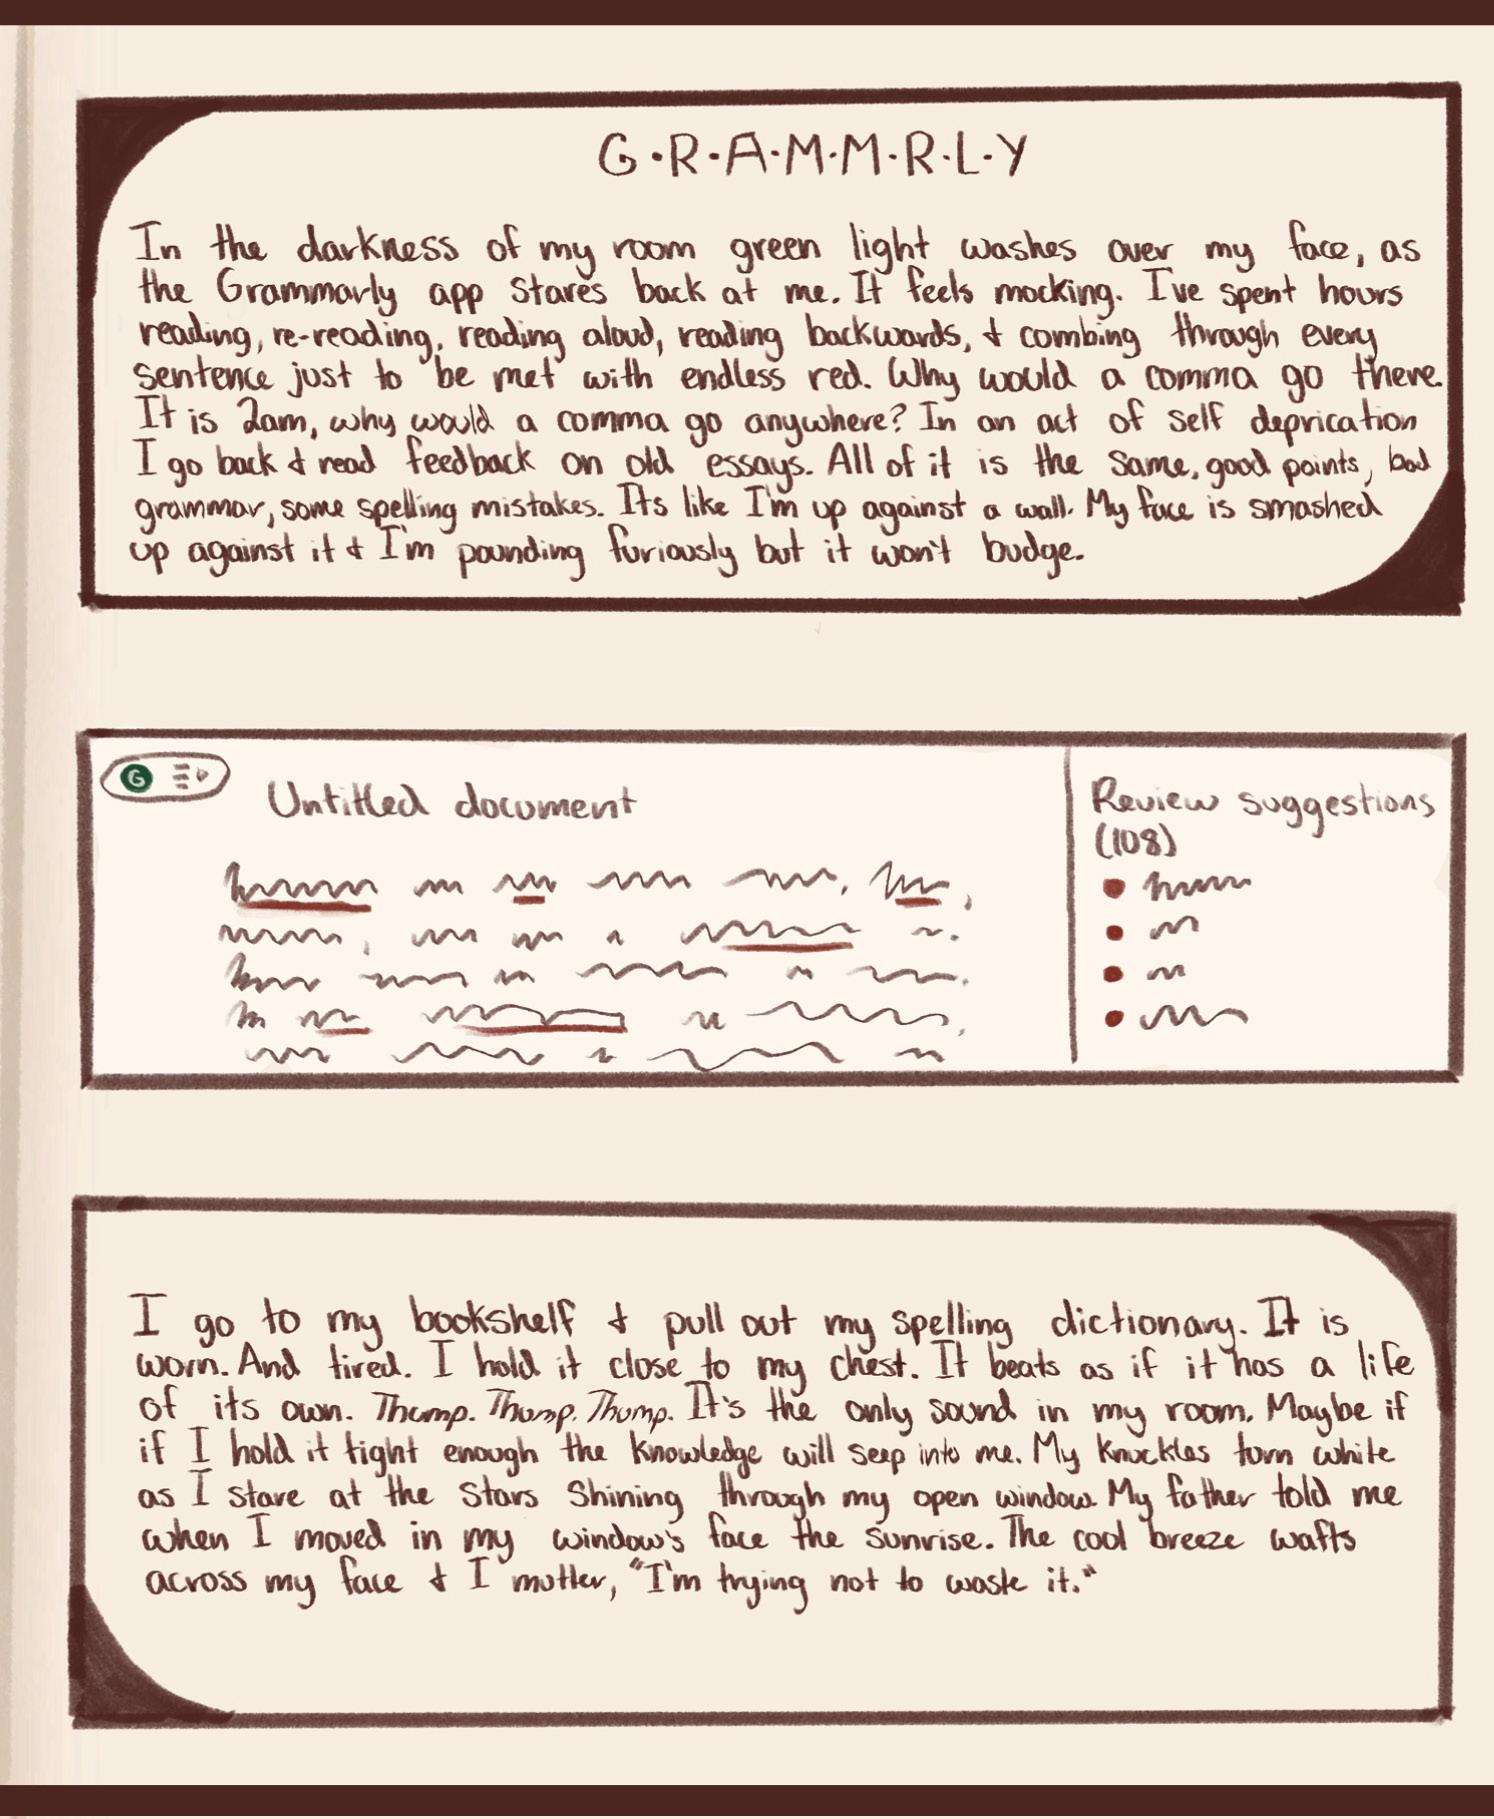 G·R·A·M·M·R·L·Y
In the darkness of my room green light washes over my face, as
the Grammarly app stares back at me. It feels mocking. I've spent hours
reading, re-reading, reading aloud, reading backwards, & combing through every
sentence just to be met with endless red. Why would a comma go there.
It is 2am, why would a comma go anywhere? In an act of self deprication
I go back & read feedback on old essays. All of it is the same, good points, bad
grammar, some spelling mistakes. Its like I'm up against a wall. My face is smashed
up against it & I'm pounding furiously but it won't budge.
G
Untitled document
Review suggestions
(108)
I go to my bookshelf & pull out my spelling dictionary. It is
worn. And tired. I hold it close to my chest. It beats as if it has a life
of its own. Thump. Thump. Thump. It's the only sound in my room. Maybe if
if I hold it tight enough the knowledge will seep into me. My knuckles turn white
as I stare at the stars shining through my open window. My father told me
when I moved in my window's face the sunrise. The cool breeze wafts
across my face & I mutter, "I'm trying not to waste it."